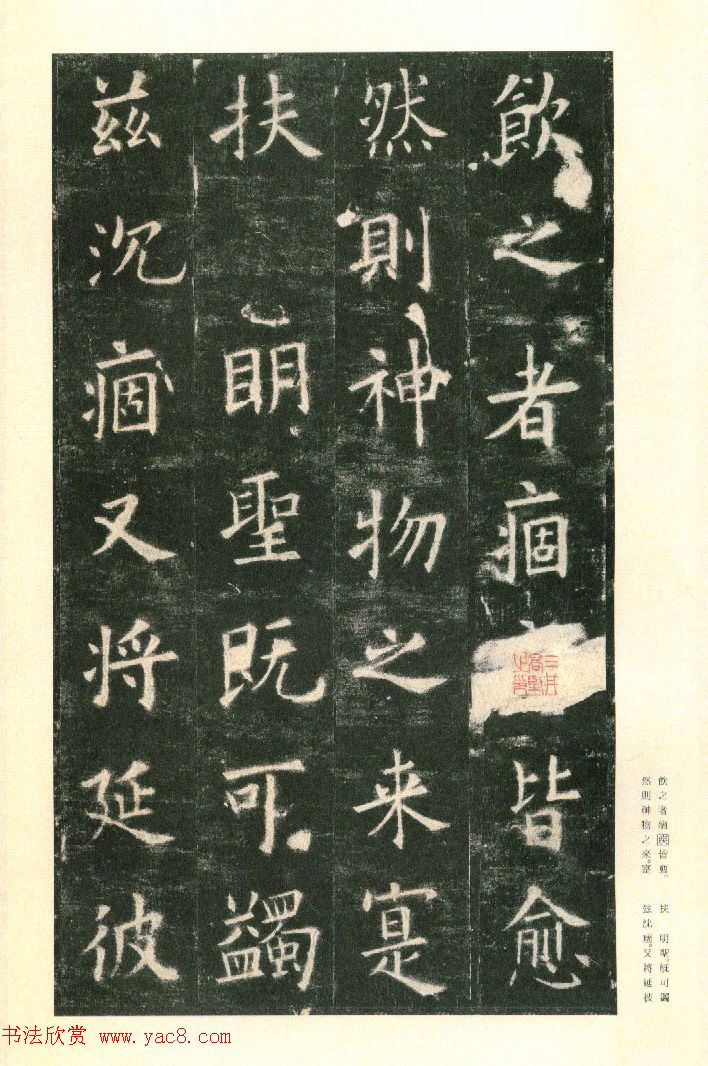 飲之者痼皆愈
然則神物之来寔
扶眀聖既可蠲
兹沉痼又将延彼
飲之者痼疾皆愈。
然則神物之來。寔
扶 明聖。既可蠲
兹沈痼。又將延彼
书法欣赏 www.yac8.com